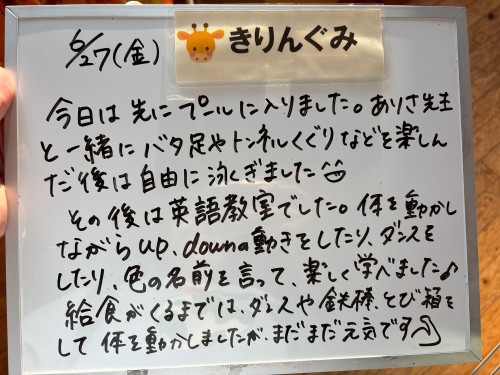 6/27(金)
きりんぐみ
今日は先にプールに入りました。ありさ先生
と一緒にバタ足やトンネルくぐりなどを楽しん
だ後は自由に泳ぎました
その後は英語教室でした。体を動かし
ながらup、downa動きをしたり、ダンスを
したり、色の名前を言って、楽しく学べました♪
給食がくるまでは、ダンスや鉄棒、とび箱を
して体を動かしましたが、まだまだ元気です